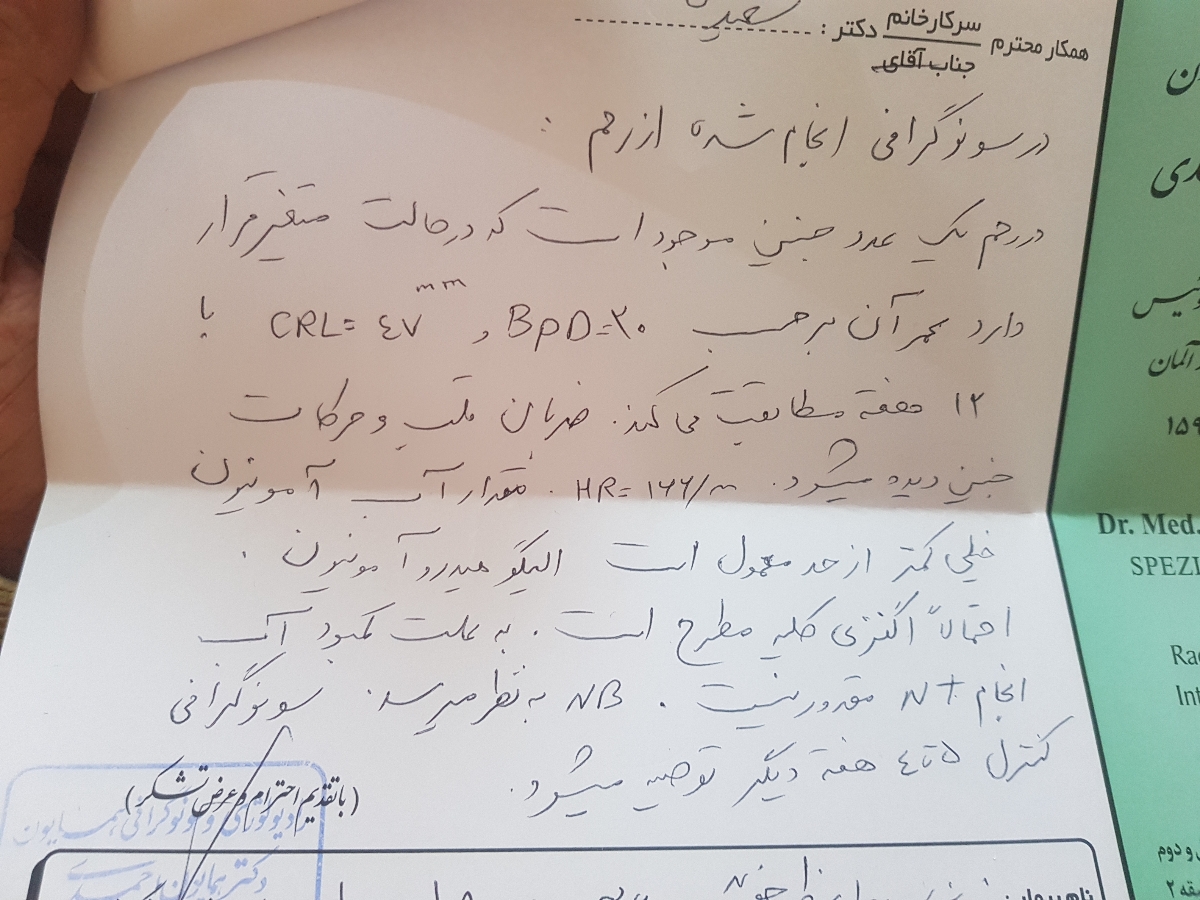 همکار محترم سرکار خانم دکتر :
جناب آقای
در سونوگرافی انجام شده از رحم :
در رحم یک عدد جنین موجود است که در حالت متغیر قرار
دارد عمر آن بر حسب BPD=۲۰ و CRL=٤٧ mm با
۱۲ هفته مطابقت می کند. ضربان قلب و حرکات
جنین دیده میشود. HR=۱۶۶/m . مقدار آب آمونیون
خیلی کمتر از حد معمول است الیگو هیدروآمونیون .
احتمالاً اگنزی کلیه مطرح است . به علت کمبود آب
انجام NT مقدور نیست . NB به نظر میرسد. سونوگرافی
کنترل ۵ تا ٤ هفته دیگر توصیه میشود.
(با تقدیم احترام و عرض تشکر)
رادیولوژی و سونوگرافی همایون
دکتر همایون
آلمان
۱۵۹
Dr. Med.
SPEZI
Ra
Int
و دوم